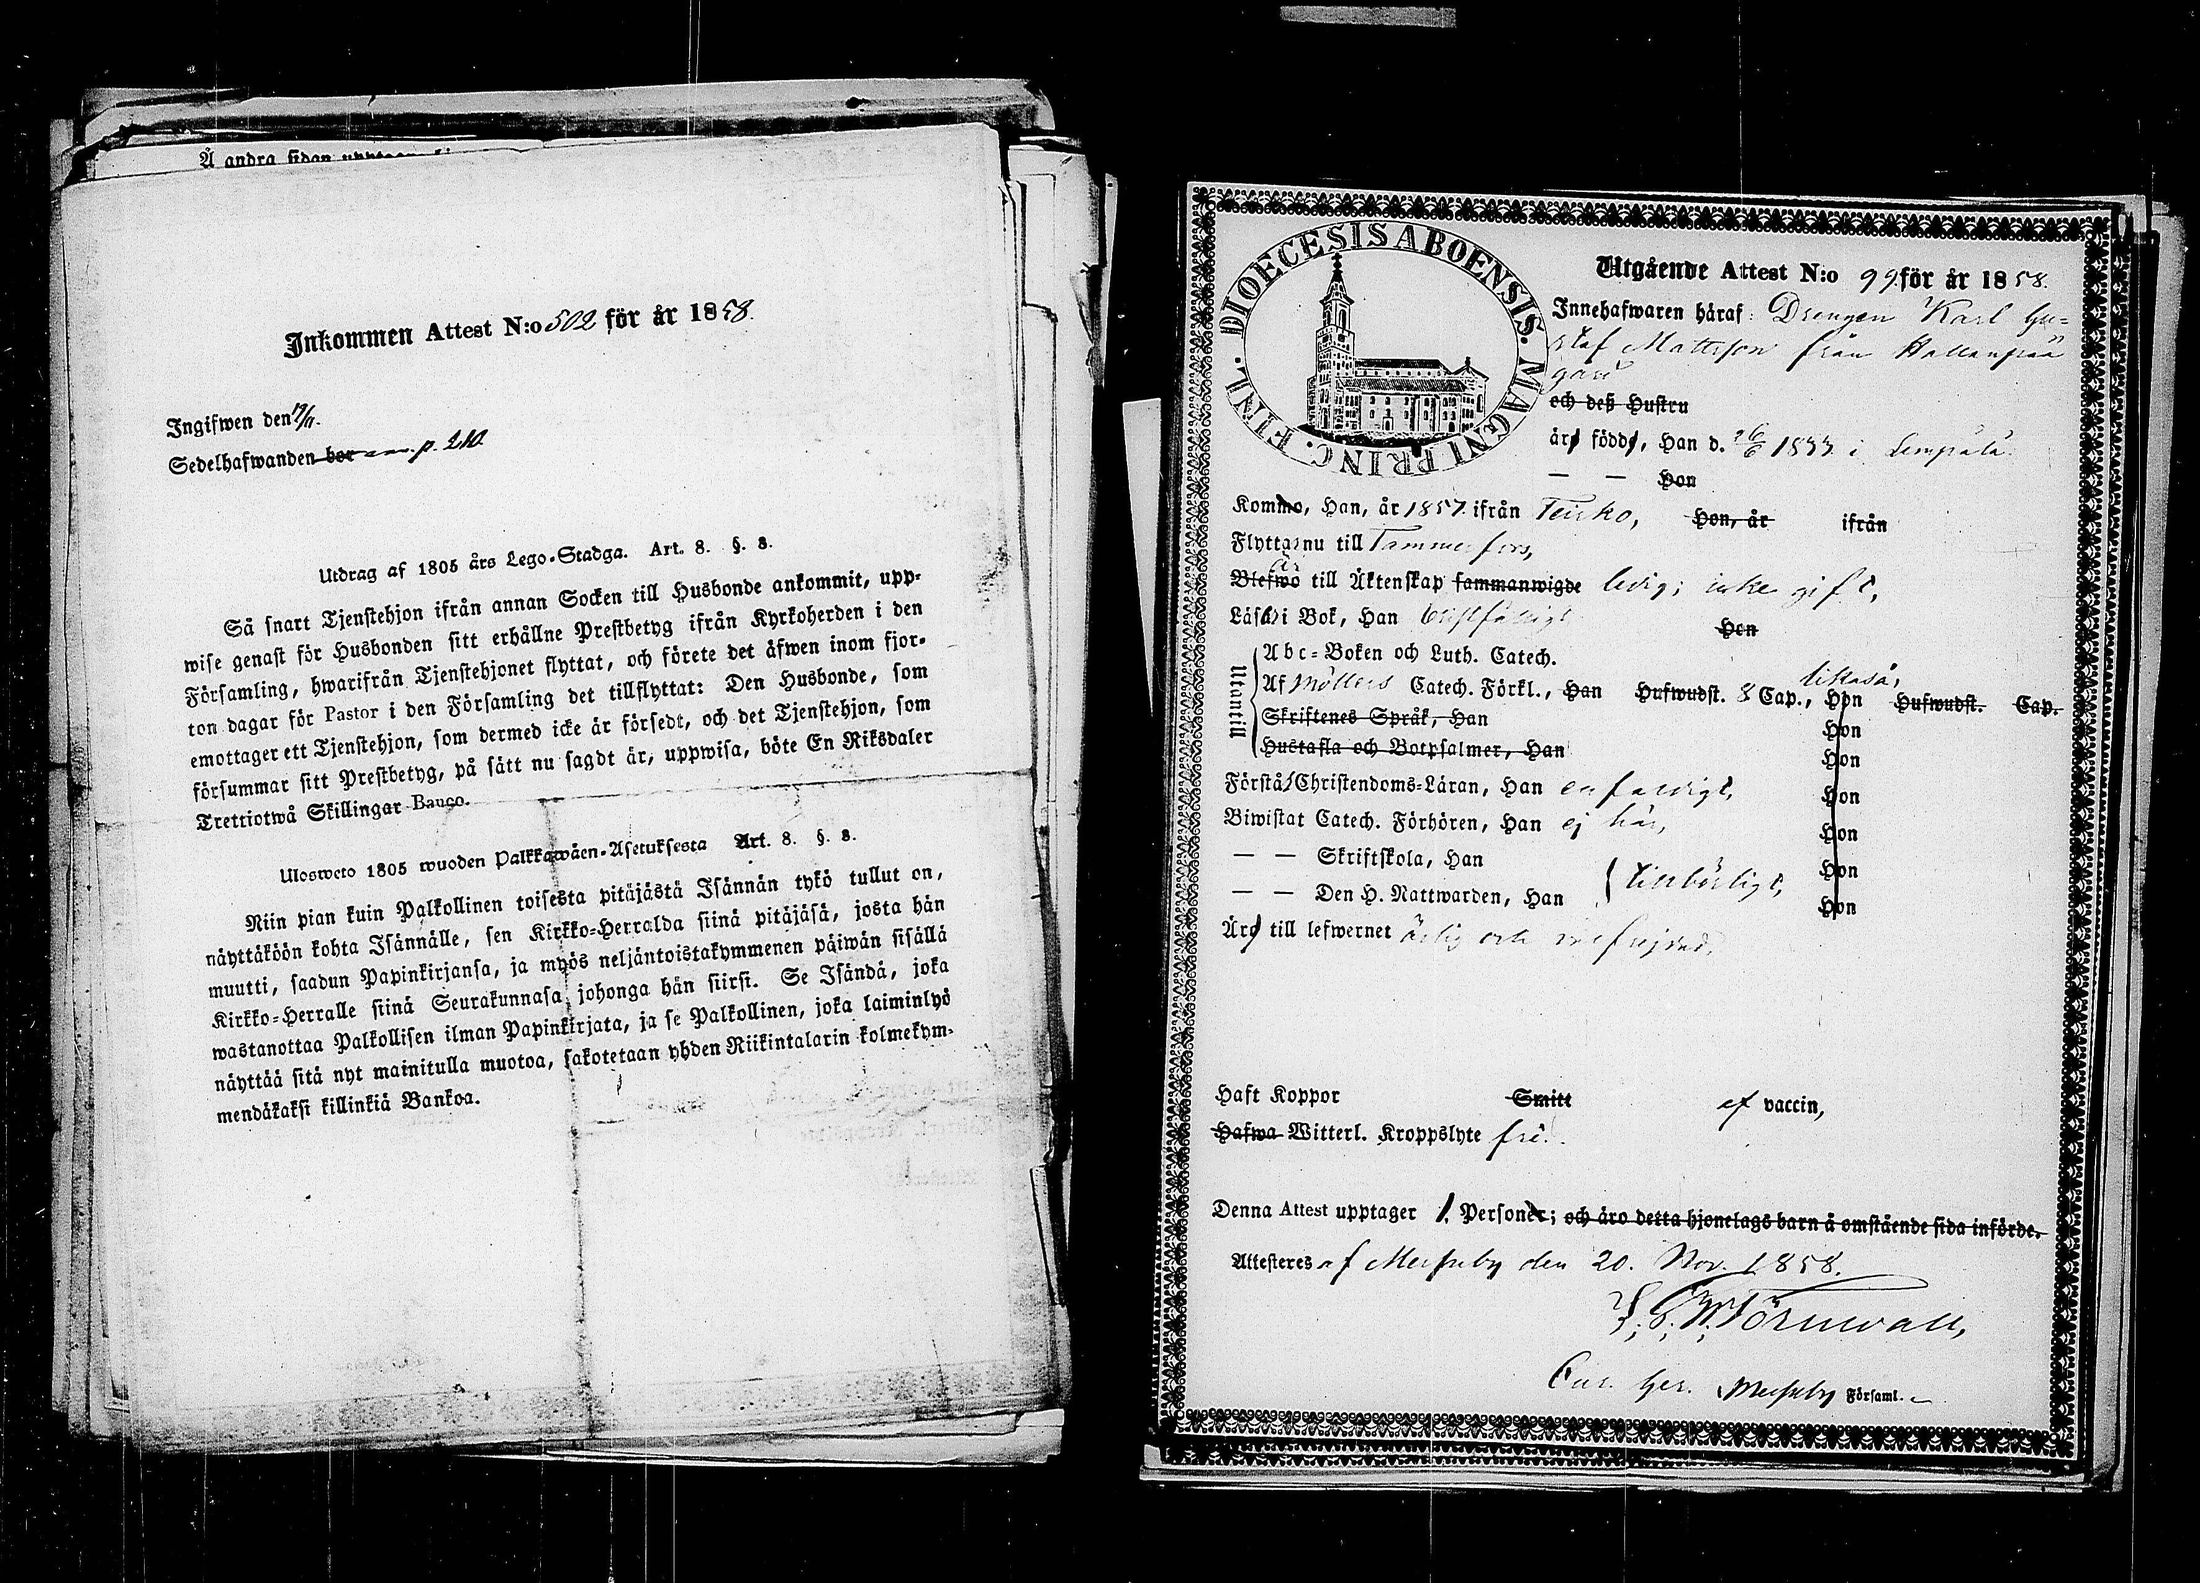 Å andra sidan
Inkommen Attest N:o 502 för år 1858.
Ingifwen den
Sedelhafwanden bor p. 210
Utdrag af 1805 års Lego-Stadga. Art. 8. §. 8.
Så snart Tjenstehjon ifrån annan Socken till Husbonde ankommit, upp-
wise genast för Husbonden sitt erhållne Prestbetyg ifrån Kyrkoherden i den
Församling, hwarifrån Tjenstehjonet flyttat, och förete det äfwen inom fjor-
ton dagar för Pastor i den Församling det tillflyttat: Den Husbonde, som
emottager ett Tjenstehjon, som dermed icke är försedt, och det Tjenstehjon, som
försummar sitt Prestbetyg, på sätt nu sagdt är, uppwisa, böte En Riksdaler
Trettiotwå Skillingar Banco.
Ulosweto 1805 wuoden Palkkawäen-Asetuksesta Art. 8. §. 8.
Niin pian kuin Palkollinen toisesta pitäjästä Isännän tykö tullut on,
näyttäköön kohta Isännälle, sen Kirkko-Herralda siinä pitäjäsä, josta hän
muutti, saadun Papinkirjansa, ja myös neljäntoistakymmenen päiwän sisällä
Kirkko-Herralle siinä Seurakunnasa, johonga hän siirsi. Se Isändä, joka
wastanottaa Palkollisen ilman Papinkirjata, ja se Palkollinen, joka laiminlyö
näyttää sitä nyt mainitulla muotoa, sakotetaan yhden Riikintalarin kolmekym-
mendäkaksi killinkiä Bankoa.
DIOECESIS ABOENSIS. MAGNI PRINC. FINL.
Utgående Attest N:o 99 för år 1858.
Innehafwaren häraf: Drengen Karl Gu-
staf Mattsson från
gård
och deß Hustru
äro födde, Han d. 26/6 1833 i Lempälä.
— — Hon
Kommo, Han, år 1857 ifrån Teisko, Hon, år ifrån
Flytta nu till Tammerfors,
är
Blefwo till Äktenskap sammanwigde ledig; icke gift,
Läsa i Bok, Han Hon
Utantill
Abc-Boken och Luth. Catech.
Af Möllers Catech. Förkl., Han Hufwudst. 8 Cap., Hon Hufwudst. Cap.
likaså,
Skriftenes Språk, Han Hon
Hustafla och Botpsalmer, Han Hon
Förstå Christendoms-Läran, Han enfaldigt, Hon
Biwistat Catech. Förhören, Han ej här, Hon
— — Skriftskola, Han Hon
— — Den H. Nattwarden, Han tillbörligt, Hon
Äro till lefwernet ärlig och
Haft Koppor Smitt af vaccin,
Hafwa Witterl. Kroppslyte fri.
Denna Attest upptager 1. Personer; och äro detta hjonelags barn å omstående sida införde.
Attesteres af Messuby den 20. Nov. 1858.
Törnwall,
Cur. Ger. Messuby Församl.